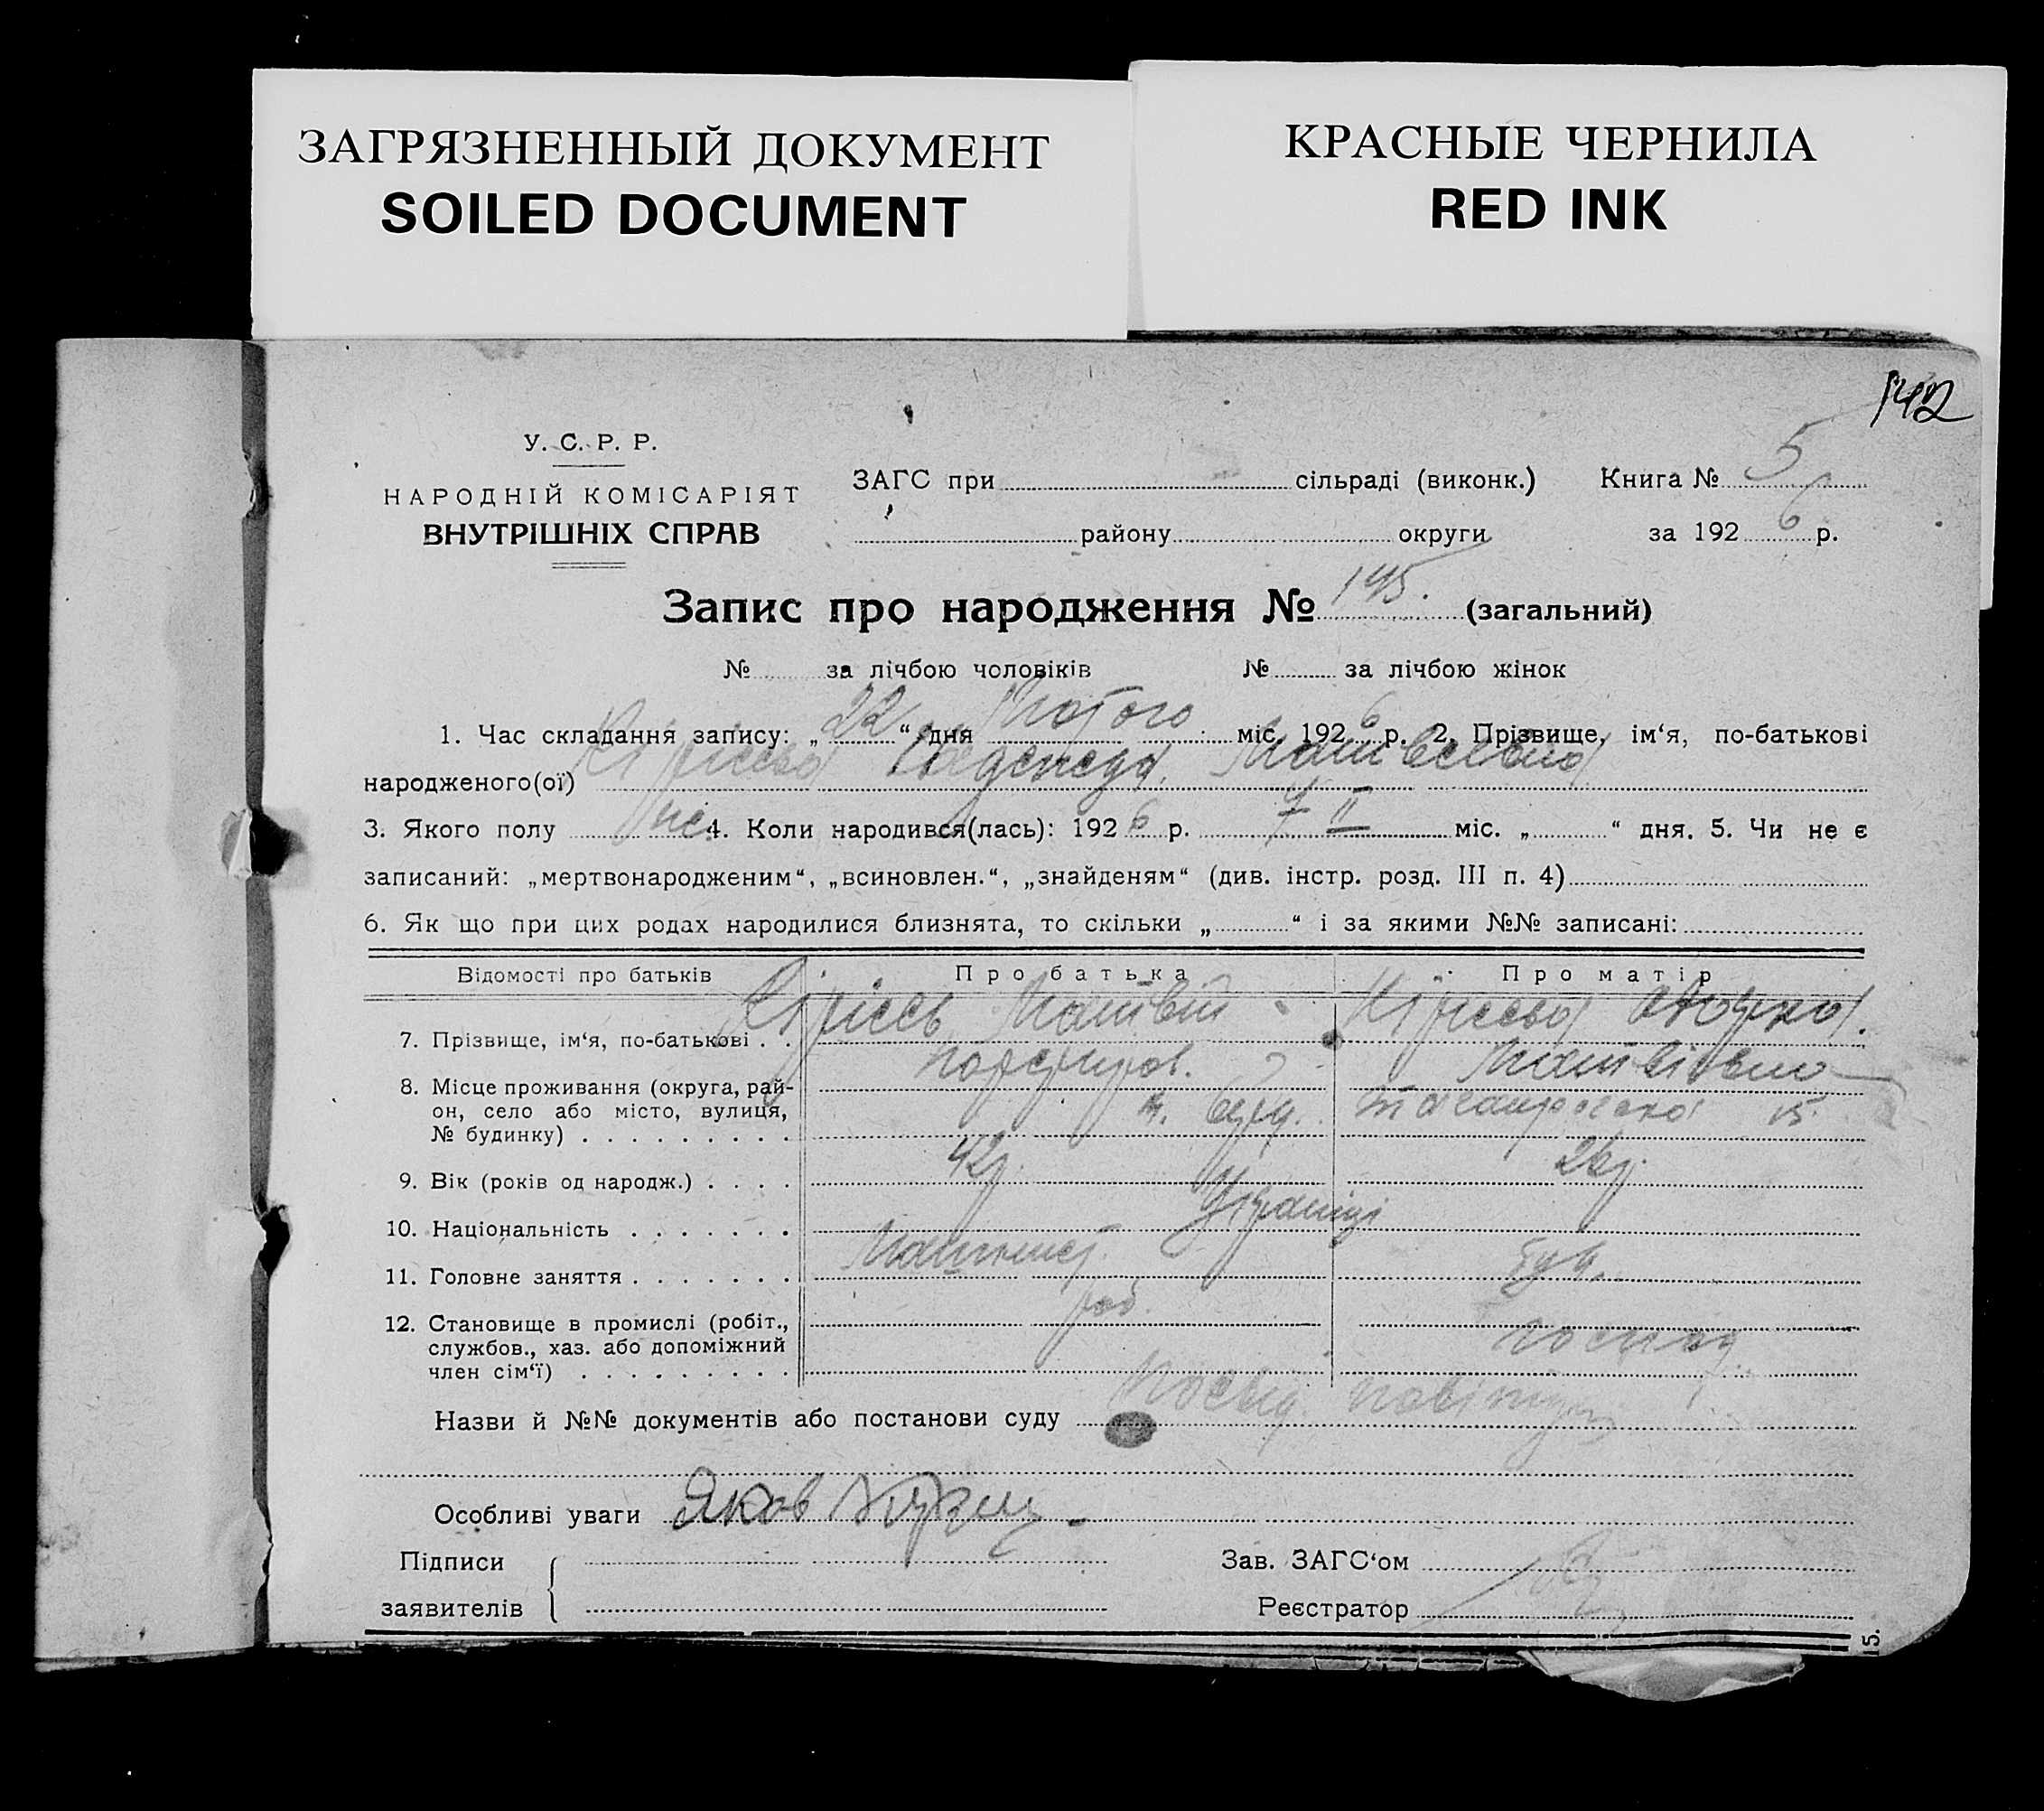 ЗАГРЯЗНЕННЫЙ ДОКУМЕНТ
SOILED DOCUMENT
КРАСНЫЕ ЧЕРНИЛА
RED INK
142
У. С. Р. Р.
НАРОДНІЙ КОМІСАРІЯТ
ВНУТРІШНІХ СПРАВ
ЗАГС при сільраді (виконк.) Книга № 5
району округи за 192 6 р.
Запис про народження № 145. (загальний)
№ за лічбою чоловіків № за лічбою жінок
1. Час складання запису: „ 22 “ дня Лютого міс. 192 6 р. 2. Прізвище, ім‘я, по-батькові
народженого(ої) Надежда Матвеевна
3. Якого полу ж 4. Коли народився(лась): 192 6 р. 7 II міс. „ “ дня. 5. Чи не є
записаний: „мертвонародженим“, „всиновлен.“, „знайденям“ (див. інстр. розд. III п. 4)
6. Як що при цих родах народилися близнята, то скільки „ “ і за якими №№ записані:
Відомості про батьків Про батька Про матір
7. Прізвище, ім‘я, по-батькові . . Матвій
Порфиров. Матвіївна
8. Місце проживання (округа, рай-
он, село або місто, вулиця,
№ будинку) . . . . . . . . . 15
9. Вік (років од народж.) . . . . 42р. 26р.
10. Національність . . . . . . . Українці
11. Головне заняття . . . . . . . Машиніст.
роб.
12. Становище в промислі (робіт.,
службов., хаз. або допоміжний
член сім‘ї) . . . . . . . . . господ.
Назви й №№ документів або постанови суду Посвід.
Особливі уваги Яков
Підписи
заявителів
Зав. ЗАГС‘ом
Реєстратор
15.